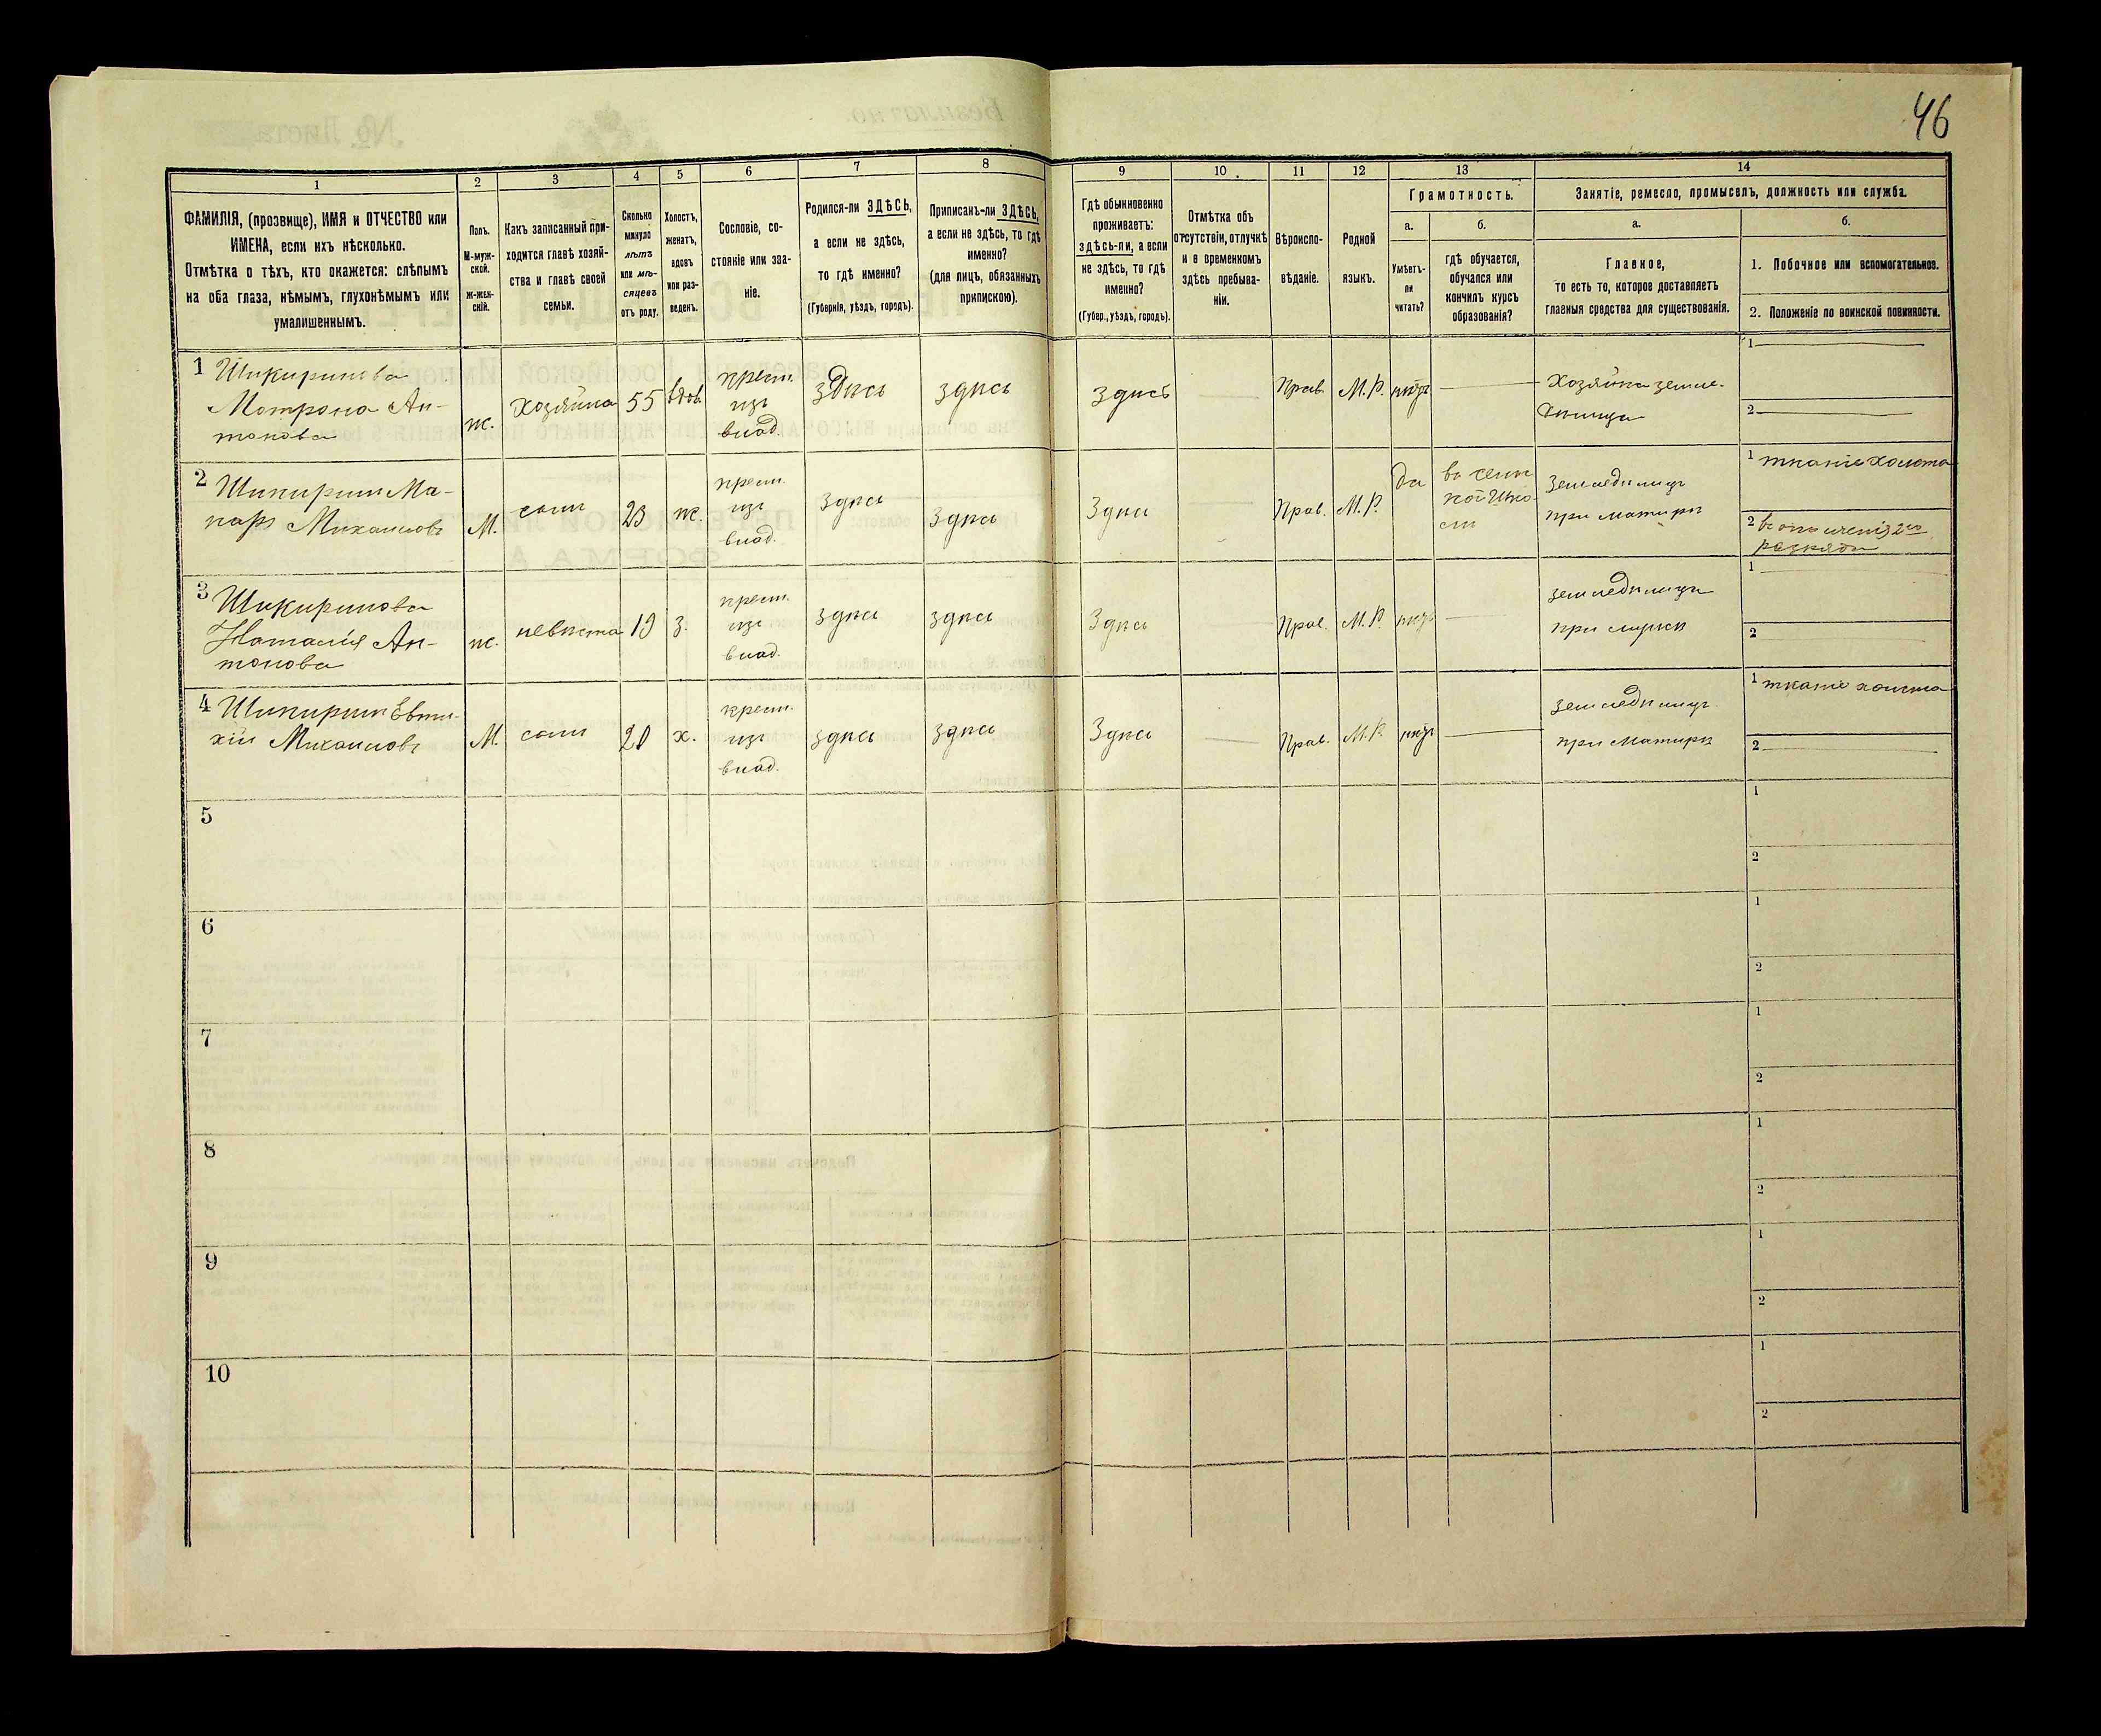 46
1 2 3 4 5 6 7 8 9 10 11 12 13 14
ФАМИЛІЯ, (прозвище), ИМЯ и ОТЧЕСТВО или
ИМЕНА, если ихъ нѣсколько.
Отмѣтка о тѣхъ, кто окажется: слѣпымъ
на оба глаза, нѣмымъ, глухонѣмымъ или
умалишеннымъ.
Полъ.
М-муж-
ской.
ж-жен-
скій.
Какъ записанный при-
ходится главѣ хозяй-
ства и главѣ своей
семьи.
Сколько
минуло
лѣтъ
или мѣ-
сяцевъ
отъ роду.
Холостъ,
женатъ,
вдовъ
или раз-
веденъ.
Сословіе, со-
стояніе или зва-
ніе.
Родился-ли ЗДѢСЬ,
а если не здѣсь,
то гдѣ именно?
(Губернія, уѣздъ, городъ).
Приписанъ-ли ЗДѢСЬ,
а если не здѣсь, то гдѣ
именно?
(для лицъ, обязанныхъ
припискою).
Гдѣ обыкновенно
проживаетъ:
здѣсь-ли, а если
не здѣсь, то гдѣ
именно?
(Губер., уѣздъ, городъ).
Отмѣтка объ
отсутствіи, отлучкѣ
и в временномъ
здѣсь пребыва-
ніи.
Вѣроиспо-
вѣданіе.
Родной
языкъ.
Грамотность.
а.
Умѣетъ-
ли
читать?
б.
гдѣ обучается,
обучался или
кончилъ курсъ
образованія?
Занятіе, ремесло, промыселъ, должность или служба.
а.
Главное,
то есть то, которое доставляетъ
главныя средства для существованія.
б.
1. Побочное или вспомогательное.
2. Положеніе по воинской повинности.
1 Шикиринова
Мотрона Ан-
тонова
ж.
Хозяйка
55
вдов.
крест.
изъ
влад.
здѣсь
здѣсь
здѣсь
Прав.
М.Р.
нѣтъ
Хозяйка земле-
1
2
2 Шикирин Ма-
каръ Михаиловъ
М.
сынъ
23
ж.
крест.
изъ
влад.
здѣсь
здѣсь
здѣсь
Прав.
М.Р.
да
въ сельс
кой шко-
лѣ
Земледѣлецъ
при матери
1 тканіе холста
2 въ ополченіи 2го
разряда
3 Шикиринова
Наталія Ан-
тонова
ж.
невѣстка
19
З.
крест.
изъ
влад.
здѣсь
здѣсь
здѣсь
Прав.
М.Р.
нѣтъ
земледѣлецъ
при мужѣ
1
2
4 Шикирин Евти-
хій Михаиловъ
М.
сынъ
20
х.
крест.
изъ
влад.
здѣсь
здѣсь
здѣсь
Прав.
М.Р.
нѣтъ
земледѣлецъ
при матери
1 тканіе холста
2
5
1
2
6
1
2
7
1
2
8
1
2
9
1
2
10
1
2